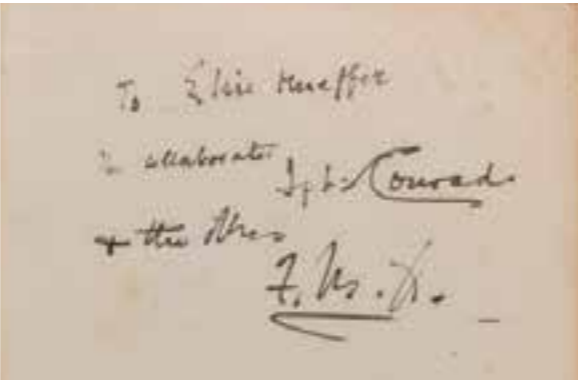 To Elsie Hueffer
collaborator
Jph. Conrad
+ the other
F. M. H.